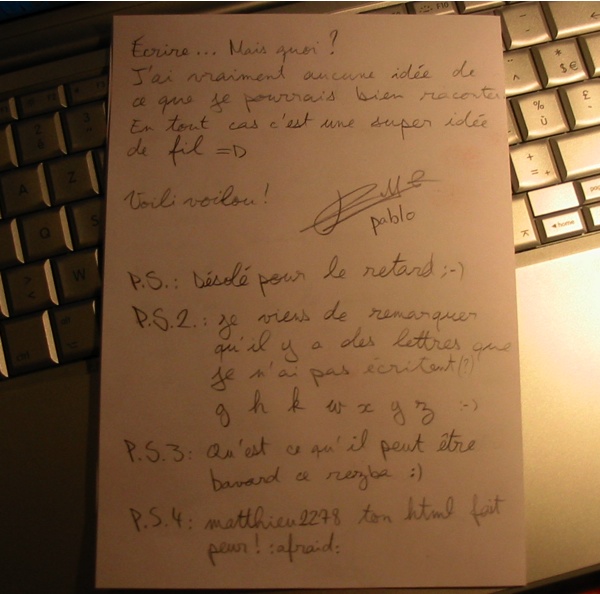 Ecrire... Mais quoi ?
J'ai vraiment aucune idée de
ce que je pourrais bien raconter
En tout cas c'est une super idée
de fil =D
Voili voilou !
pablo
P.S.: Désolé pour le retard ;-)
P.S.2.: je viens de remarquer
qu'il y a des lettres que
je n'ai pas écritent(?)
g h k w x y z :-)
P.S.3: Qu'est ce qu'il peut être
bavard ce rezba :)
P.S.4: matthieu2278 ton html fait
peur! :afraid: